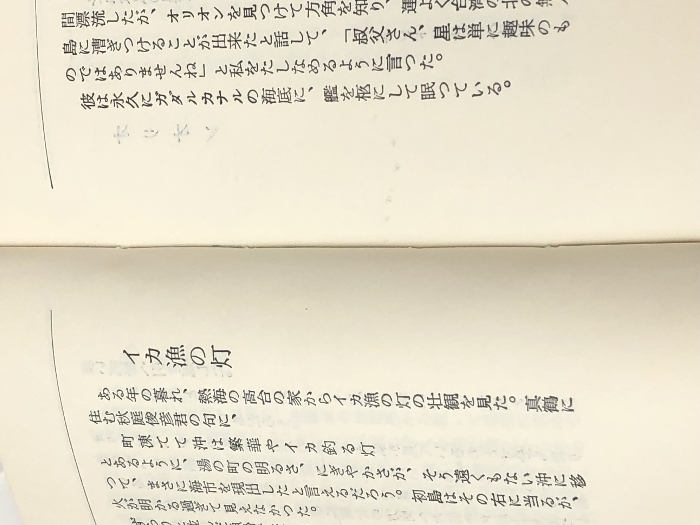 間漂流したが、オリオンを見つけて方角を知り、運よく台湾の
島に漕ぎつけることが出来たと話して、「叔父さん、星は単に趣味のも
のではありませんね」と私をたしなめるように言った。
彼は永久にガダルカナルの海底に、艦を柩にして眠っている。
イカ漁の灯
ある年の暮れ、熱海の高台の家からイカ漁の灯の壮観を見た。真鶴に
住む秋庭俊彦君の句に、
町凍てて沖は繁華やイカ釣る灯
とあるように、湯の町の明るさ、にぎやかさが、そう遠くもない沖に移
って、まさに海市を現出したと言えるだろう。初島はその右に当るが、
火が明かる過ぎて見えなかった。